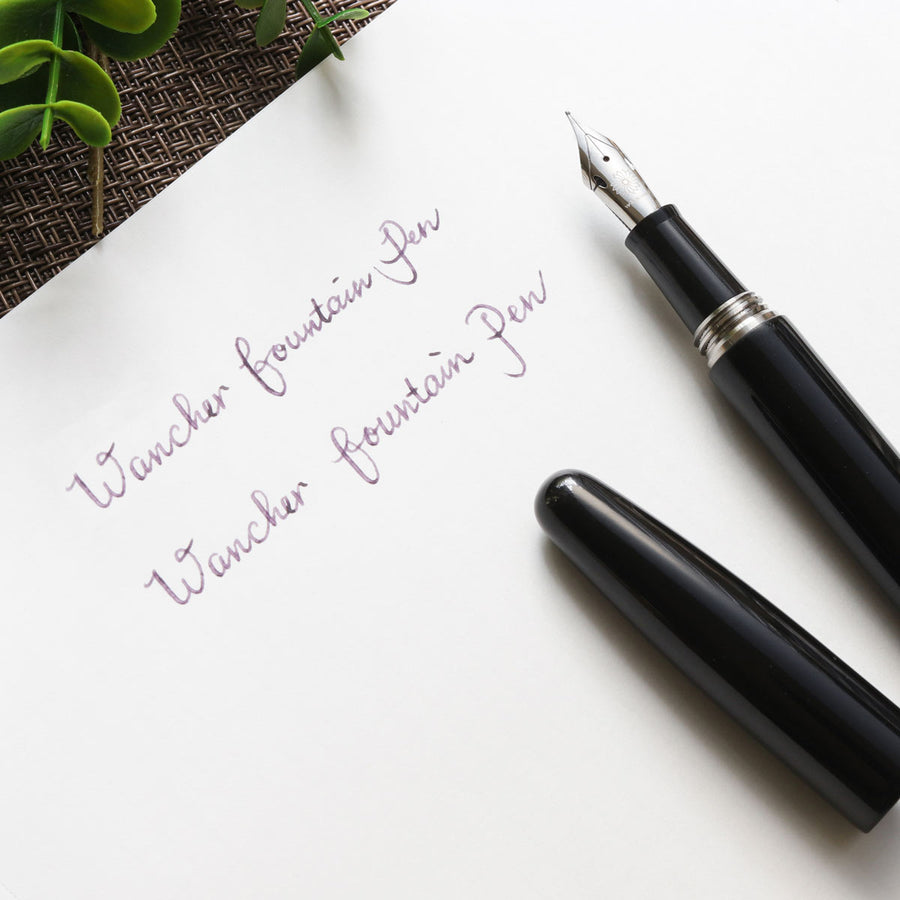 Wancher fountain Pen
Wancher fountain Pen